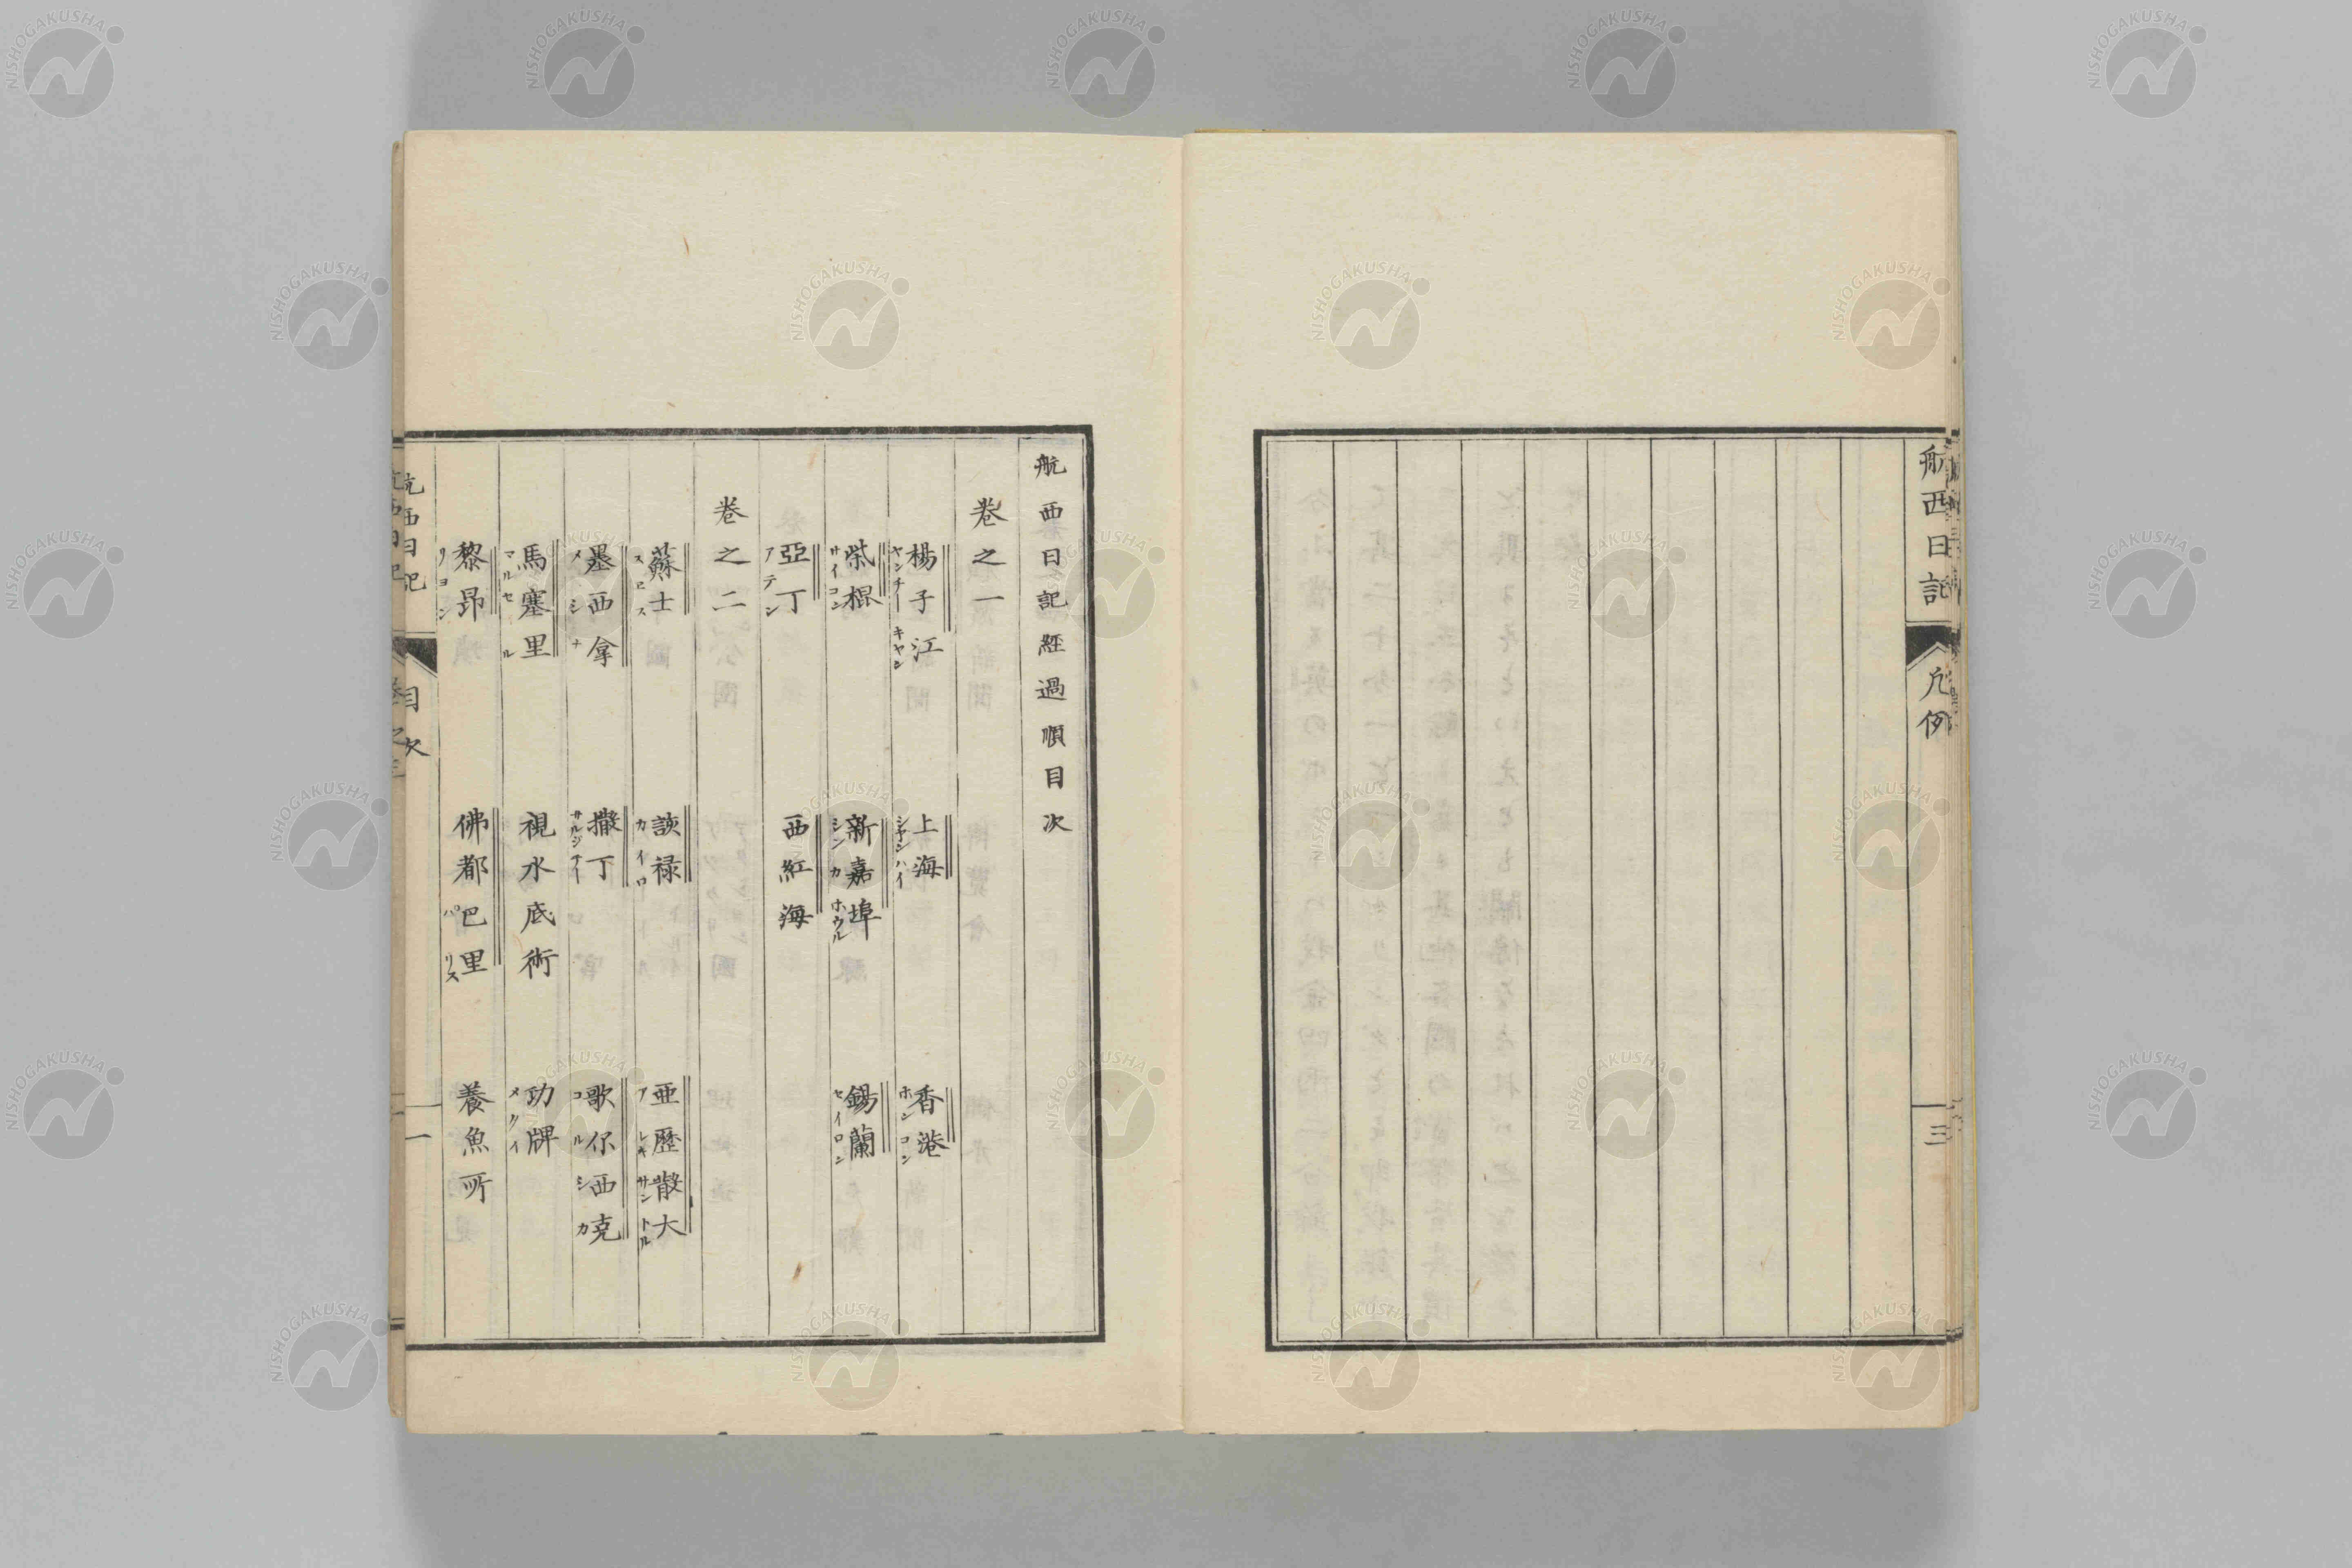 航西日記
凡例
三
航西日記経過順目次
卷之一
楊子江 ヤンチーキヤン
上海 シヤンハイ
香港 ホンコン
柴棍 サイコン
新嘉埠 シンカホウル
錫蘭 セイロン
亞丁 アテン
西紅海
卷之二
蘇士 スヱス
談禄 カイロ
亜歷散大 アレキサントル
墨西拿 メシナ
撒丁 サルジナー
歌尓西克 コルシカ
馬塞里 マルセル
視水底術
功牌 メタイ
黎昂 リヨン
佛都巴里 パリス
養魚所
航西日記
目次
一
NISHOGAKUSHA